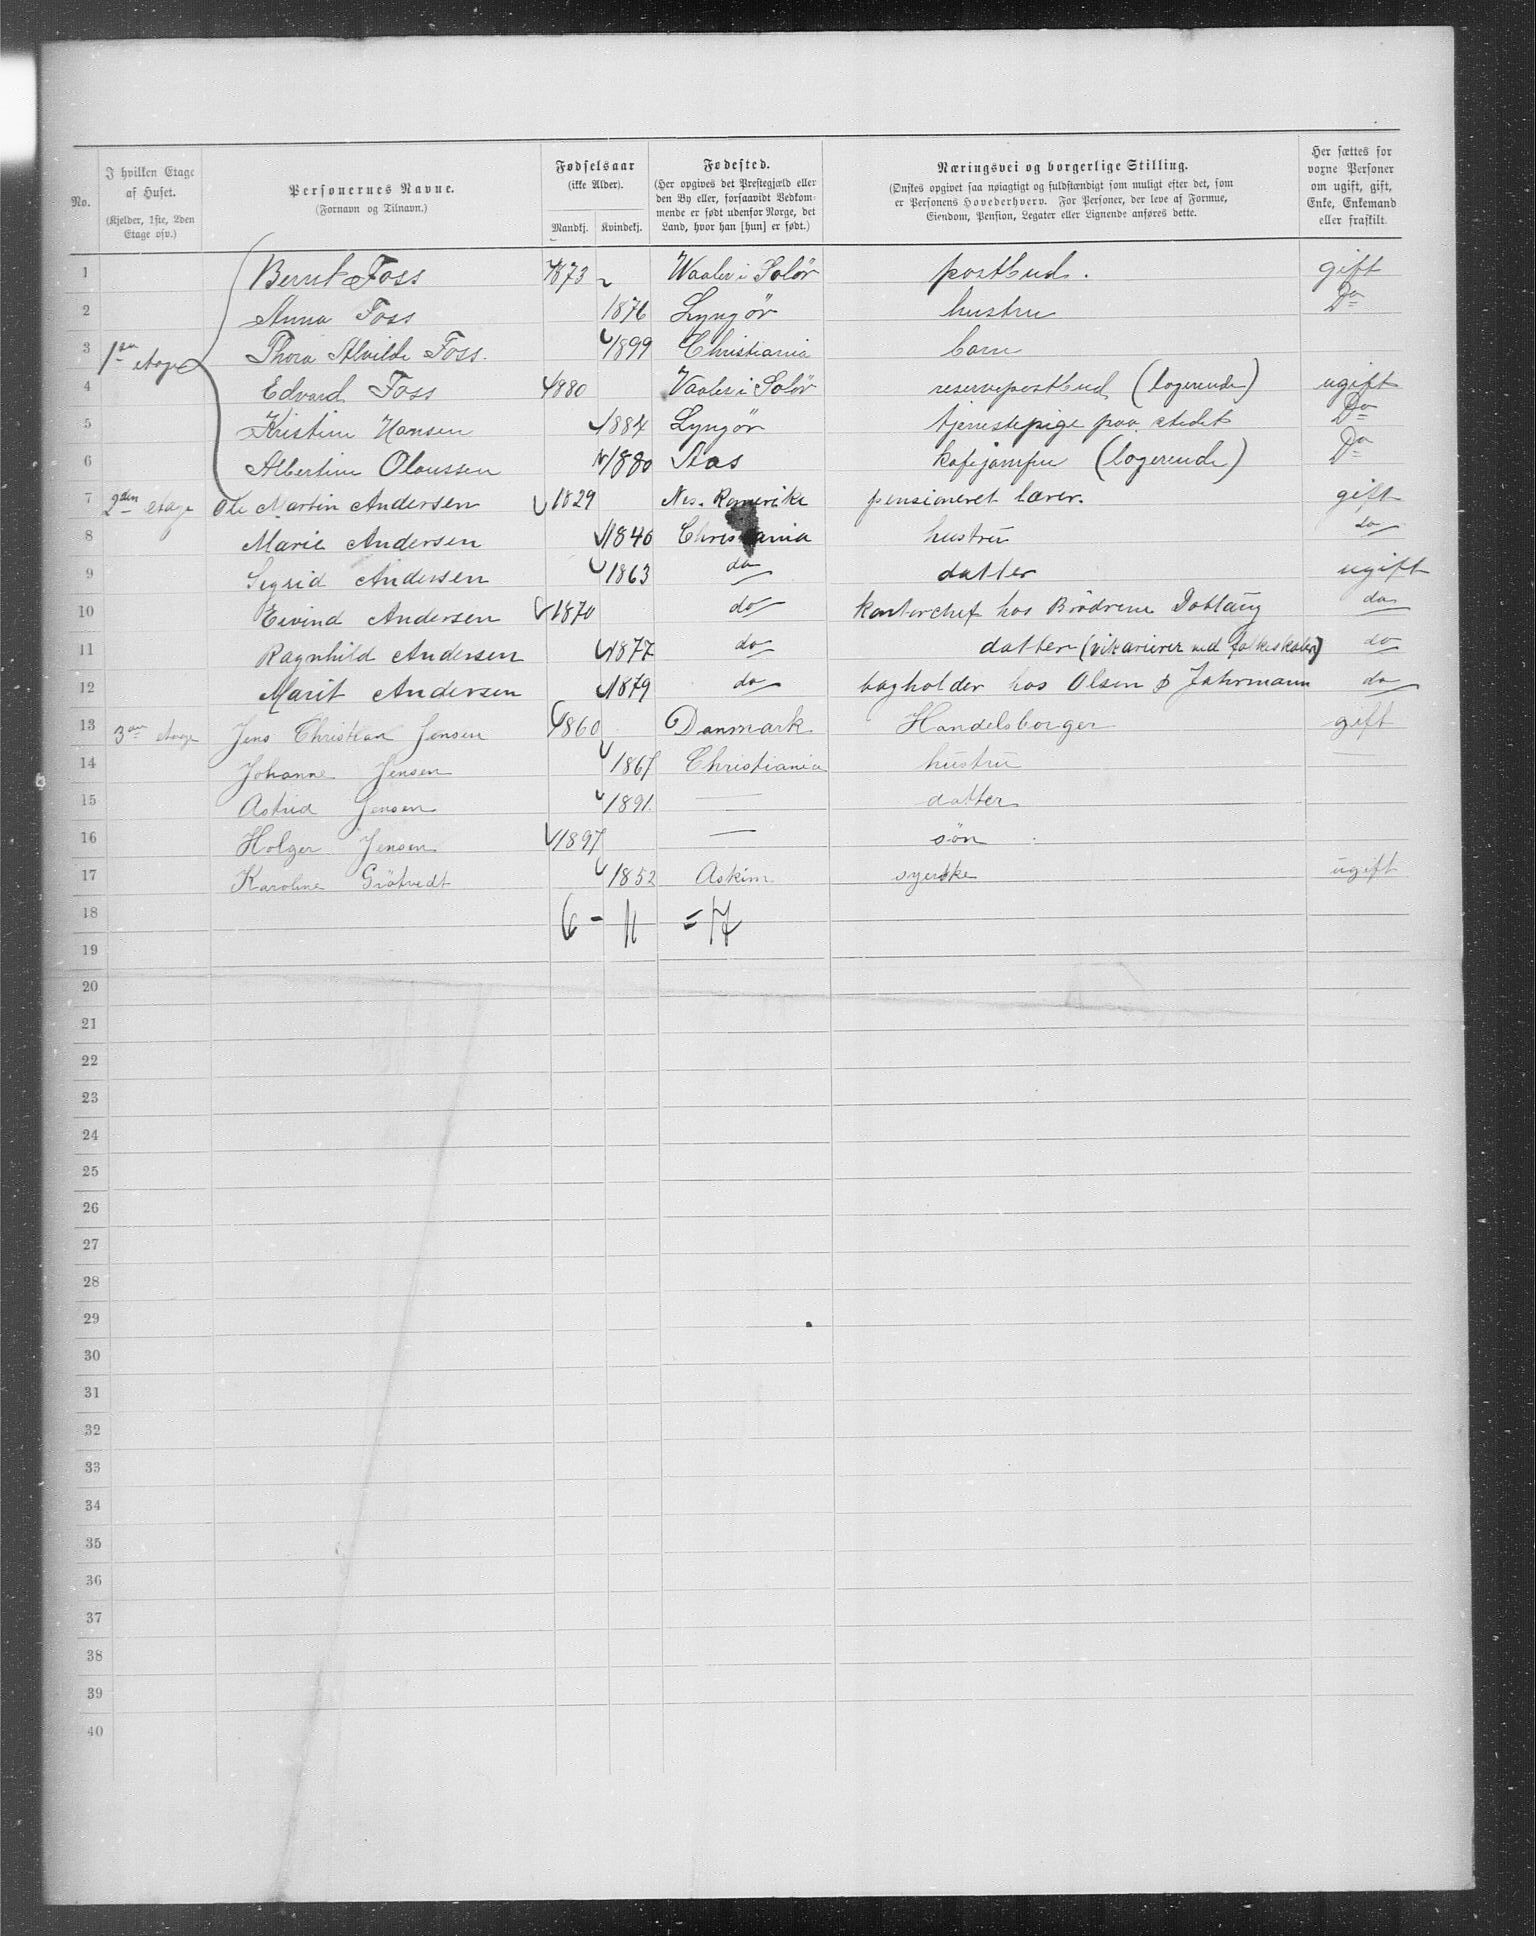 No.
I hvilken Etage af Huset.
(Kjelder, 1ste, 2den Etage osv.)
Personernes Navne.
(Fornavn og Tilnavn.)
Fødselsaar
(ikke Alder).
Mandkj. Kvindekj.
Fødested.
(Her opgives det Prestegjæld eller
den By eller, forsaavidt Vedkom-
mende er født udenfor Norge, det
Land, hvor han [hun] er født.)
Næringsvei og borgerlige Stilling.
(Ønskes opgivet saa nøiagtigt og fuldstændigt som muligt efter det, som
er Personens Hovederhverv. For Personer, der leve af Formue,
Eiendom, Pension, Legater eller Lignende anføres dette.
Her sættes for
voxne Personer
om ugift, gift,
Enke, Enkemand
eller fraskilt.
1 Bernt Foss 1873 Waaler i Solör postbud. gift
2 Anna Foss 1876 Lyngör hustru Do
3 1ste etage Thora Alvilde Foss. 1899 Christiania barn
4 Edvard Foss 1880 Vaaler i Solör reservepostbud (logerende) ugift
5 Kristine Hansen 1884 Lyngör tjenestepige paa stedet Do
6 Albertine Olaussen 1880 Aas kafejomfru (logerende) Do
7 2den etage Ole Martin Andersen 1829 Nes. Romerike pensioneret lærer. gift
8 Marie Andersen 1840 Christiania hustru do
9 Sigrid Andersen 1863 do datter ugift
10 Eivind Andersen 1870 do kontorchef hos Brödrene Dobloug do
11 Ragnhild Andersen 1877 do datter (vikarierer ved folkeskolen) do
12 Marit Andersen 1879 do bogholder hos Olsen & Jahrmann do
13 3die etage Jens Christian Jensen 1860 Danmark Handelsborger gift
14 Johanne Jensen 1867 Christiania hustru —
15 Astrid Jensen 1891. — datter
16 Holger Jensen 1897 — sön
17 Karoline Grötvedt 1852 Askim syerske ugift
18 6 - 11 = 17
19
20
21
22
23
24
25
26
27
28
29
30
31
32
33
34
35
36
37
38
39
40